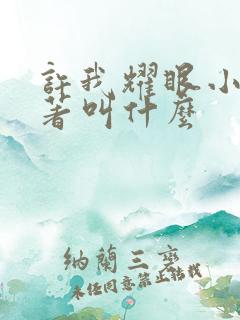 許我耀眼小
著叫什麼
納蘭三變
未經同意禁止轉載